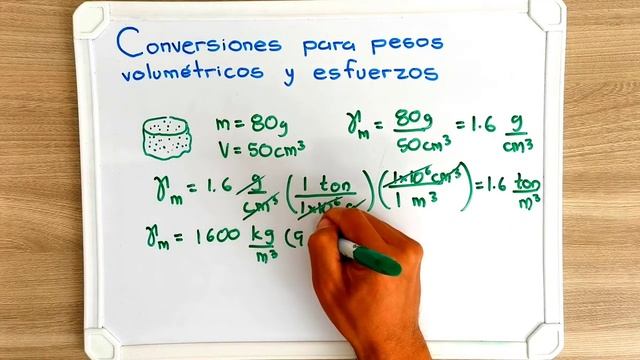 Conversiones para pesos
volumétricos y esfuerzos
m = 80g
V = 50cm³
γm = 80g / 50cm³ = 1.6 g/cm³
γm = 1.6 g/cm³ (1 ton / 1x10⁶ g) (1x10⁶ cm³ / 1 m³) = 1.6 ton/m³
γm = 1600 kg/m³ (9